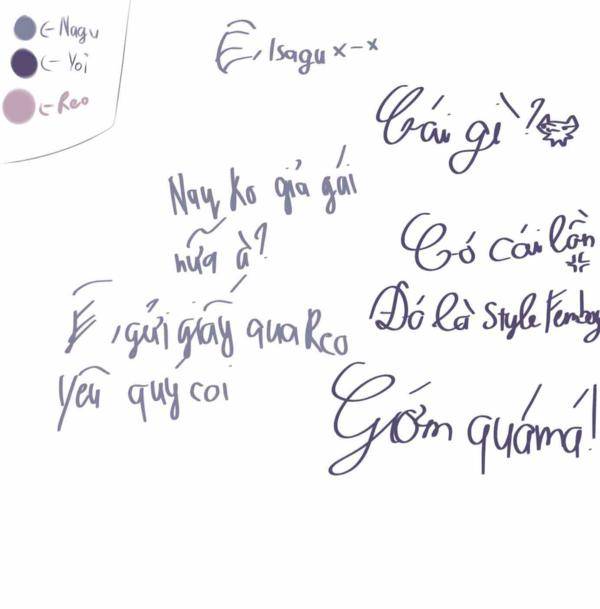 ← Nagu
← Yoi
← Reo
Ê, Isagu x-x
Cái gì?
Nay ko giả gái
nữa à?
Có cái lồn
Đó là style Femboy
Ê, gửi giấy qua Reo
yêu quý coi
Gớm quá má!